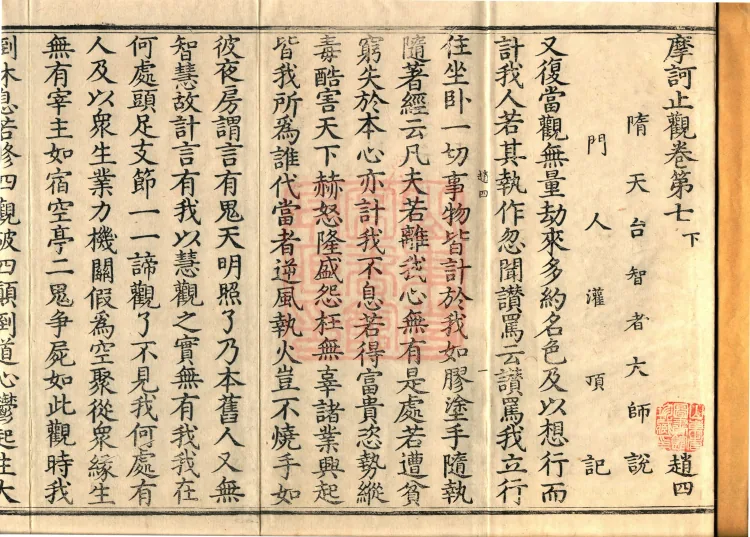 摩訶止觀卷第七下　趙四
隋天台智者大師說
門人灌頂記
又復當觀無量劫來多約名色及以想行而
計我人若其執作忽聞讚罵云讚罵我立行
住坐卧一切事物皆計於我如膠塗手隨執
趙四　一
隨著經云凡夫若離我心無有是處若遭貧
窮失於本心亦計我不息若得富貴恣勢縱
毒酷害天下赫怒隆盛怨枉無辜諸業興起
皆我所為誰代當者逆風執火豈不燒手如
彼夜房謂言有鬼天明照了乃本舊人又無
智慧故計言有我以慧觀之實無有我我在
何處頭足支節一一諦觀了不見我何處有
人及以眾生業力機關假為空聚從眾緣生
無有宰主如宿空亭二鬼爭屍如此觀時我
倒休息若修四觀破四顛倒道心鬱起生大